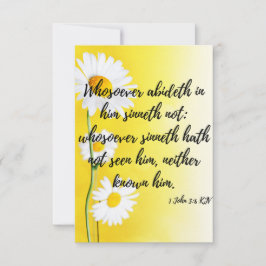 Whosoever abideth in
him sinneth not:
whosoever sinneth hath
not seen him, neither
known him.
1 John 3:6 KJV